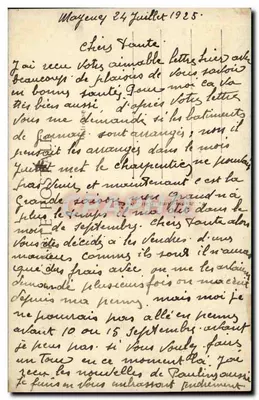 Mayenes 24 Juillet 1925.
Chers Tante
J'ai recu Votre aimable lettre hier avec
beaucoup de plaisirs de Vous savoir
en bonne santé, Pour moi ça va
tres bien aussi, d'après Votre lettre
Vous me demandé si les batiments
de sont arrangés, non il
pensait les arranges dans le mois
Juillet met le charpentier ne pouvait
pas Venir et maintenant c'est la
plus le temps dans le
mois de septembre. Chers Tante alors
Vous decides a les Vendres d'une
manière comme ils sont il n'aura
que des frais avec on me les a
demandé plusieurs fois on m'a
depuis ma mais moi je
ne pourrais pas allé en
avant 10 ou 15 Septembre avant
je peus pas si Vous Voulez faire
un Tour en ce moment la, j'ai
recu les nouvelles de Paulin aussi
Je finis en Vous embrassant tendrement